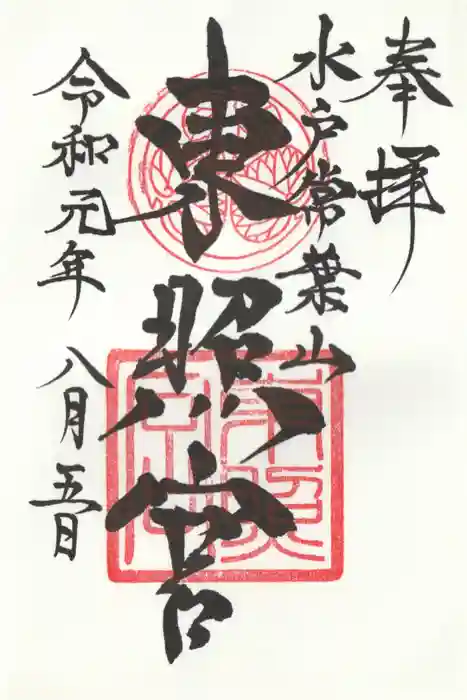 奉拝
水戸常葉山
東照宮
令和元年 八月五日